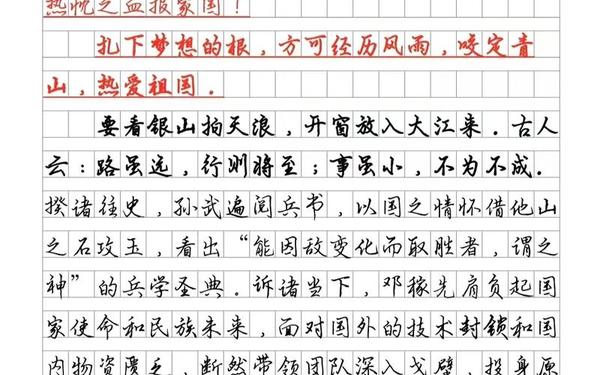 热忱之血报家国！
扎下梦想的根，方可经历风雨，咬定青
山，热爱祖国．
要看银山拍天浪，开窗放入大江来．古人
云：路虽远，行则将至；事虽小，不为不成．
揆诸往史，孙武遍阅兵书，以国之情怀借他山
之石攻玉，看出“能因敌变化而取胜者，谓之
神”的兵学圣典．诉诸当下，邓稼先肩负起国
家使命和民族未来，面对国外的技术封锁和国
内物资匮乏，断然带领团队深入戈壁，投身原